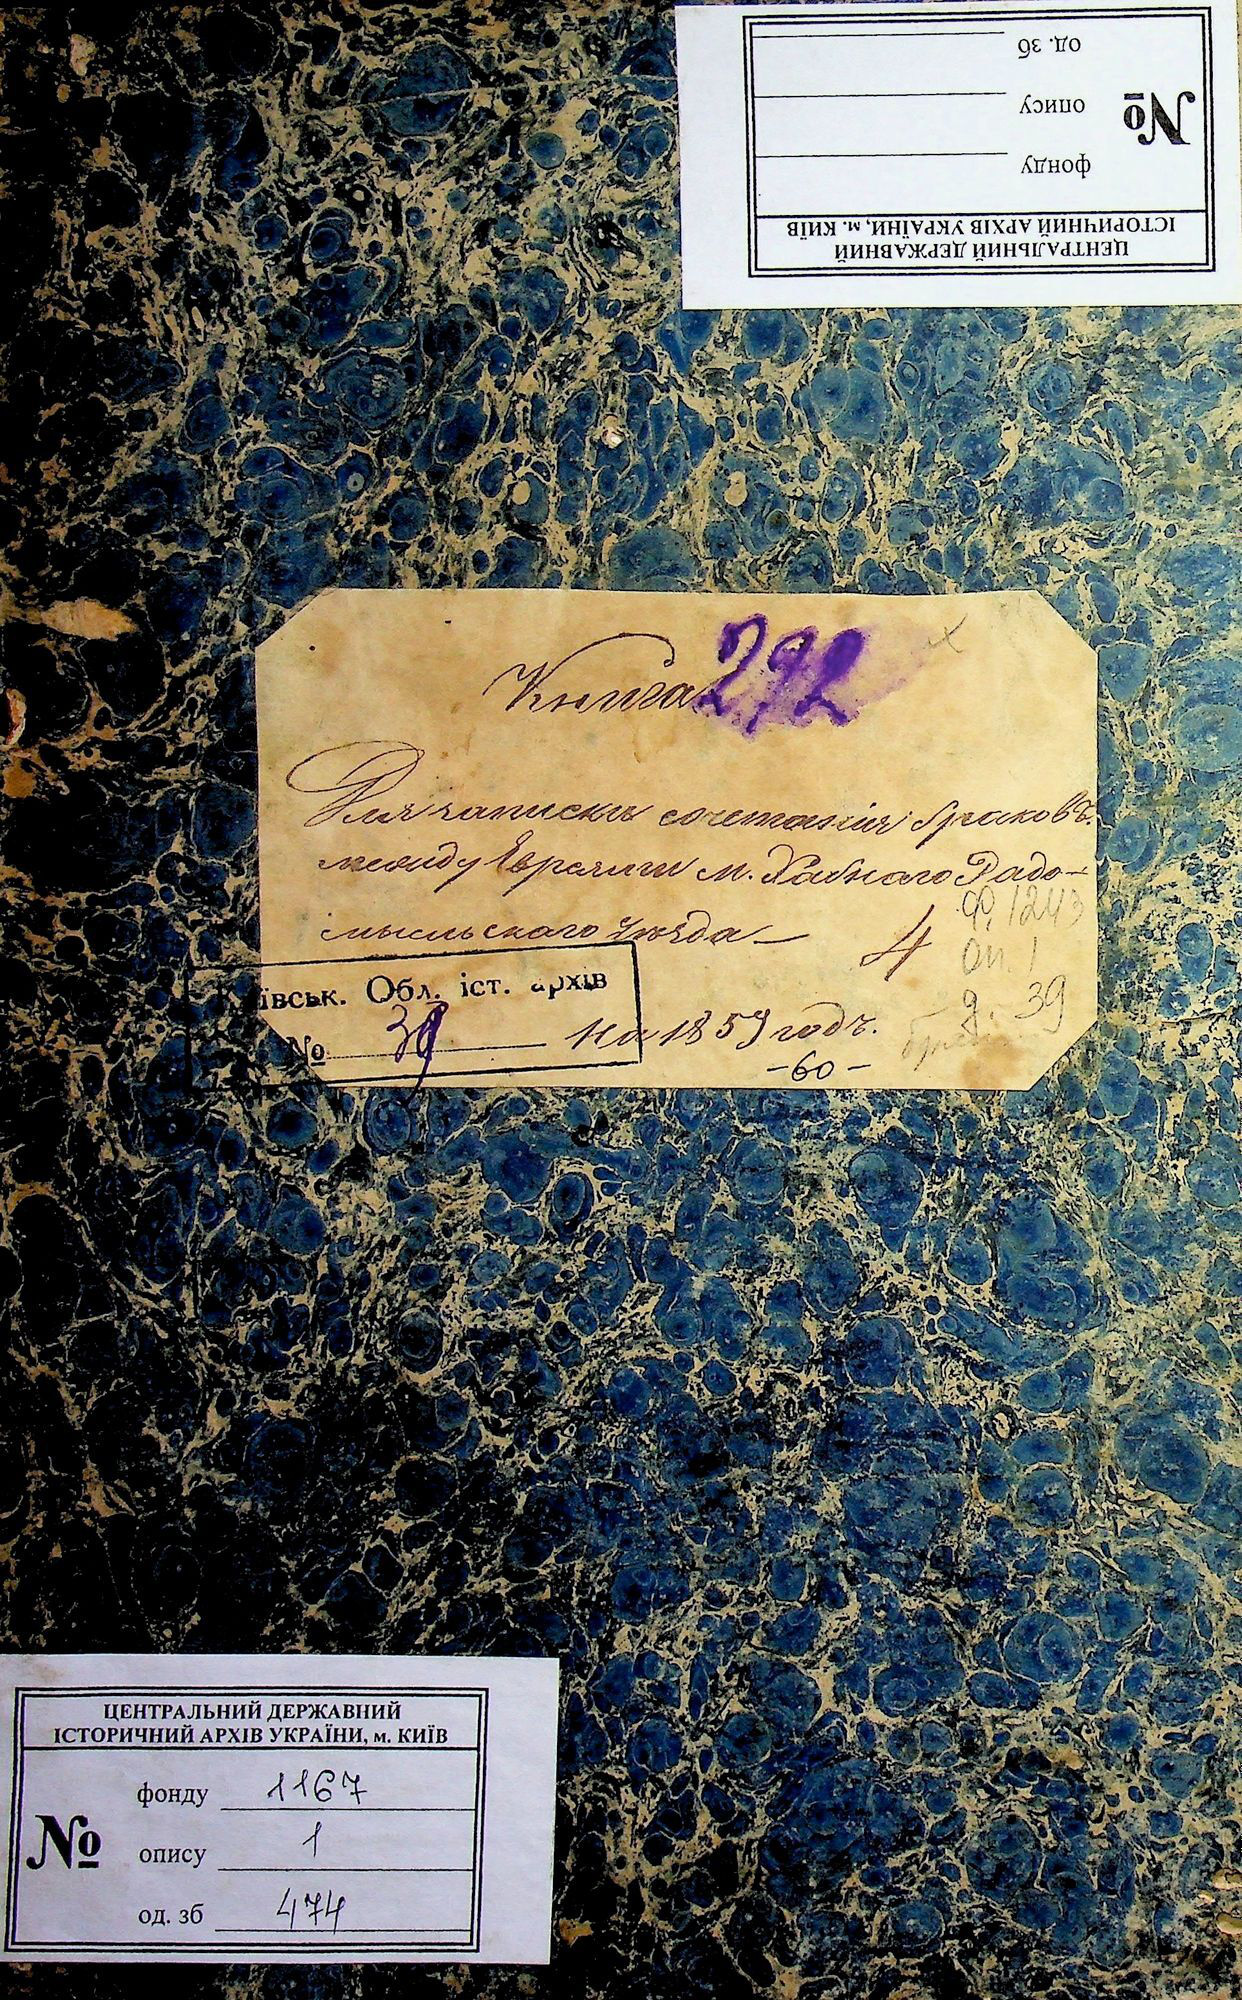 од. зб
опису
№
фонду
ЦЕНТРАЛЬНИЙ ДЕРЖАВНИЙ
ІСТОРИЧНИЙ АРХІВ УКРАЇНИ, м. КИЇВ
Книга 292
Для записки сочетанія браковъ
между Евреями м. Хабнаго Радо-
мысльскаго Уѣзда —
4
Ф. 1243
оп. 1
д. 39
Київськ. Обл. іст. архів
№ 39
на 1859 годъ.
-60-
ЦЕНТРАЛЬНИЙ ДЕРЖАВНИЙ
ІСТОРИЧНИЙ АРХІВ УКРАЇНИ, м. КИЇВ
фонду 1167
№
опису 1
од. зб 474